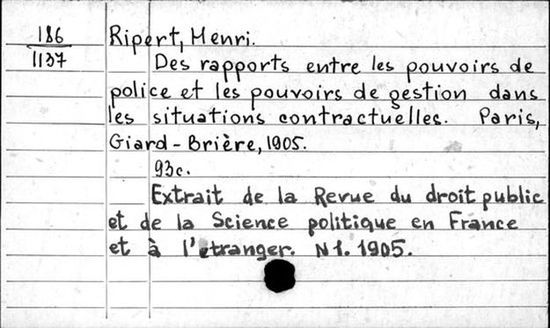 186 Ripert, Henri.
1137 Des rapports entre les pouvoirs de
police et les pouvoirs de gestion dans
les situations contractuelles. Paris,
Giard-Brière, 1905.
93c.
Extrait de la Revue du droit public
et de la Science politique en France
et à l'etranger. N1. 1905.